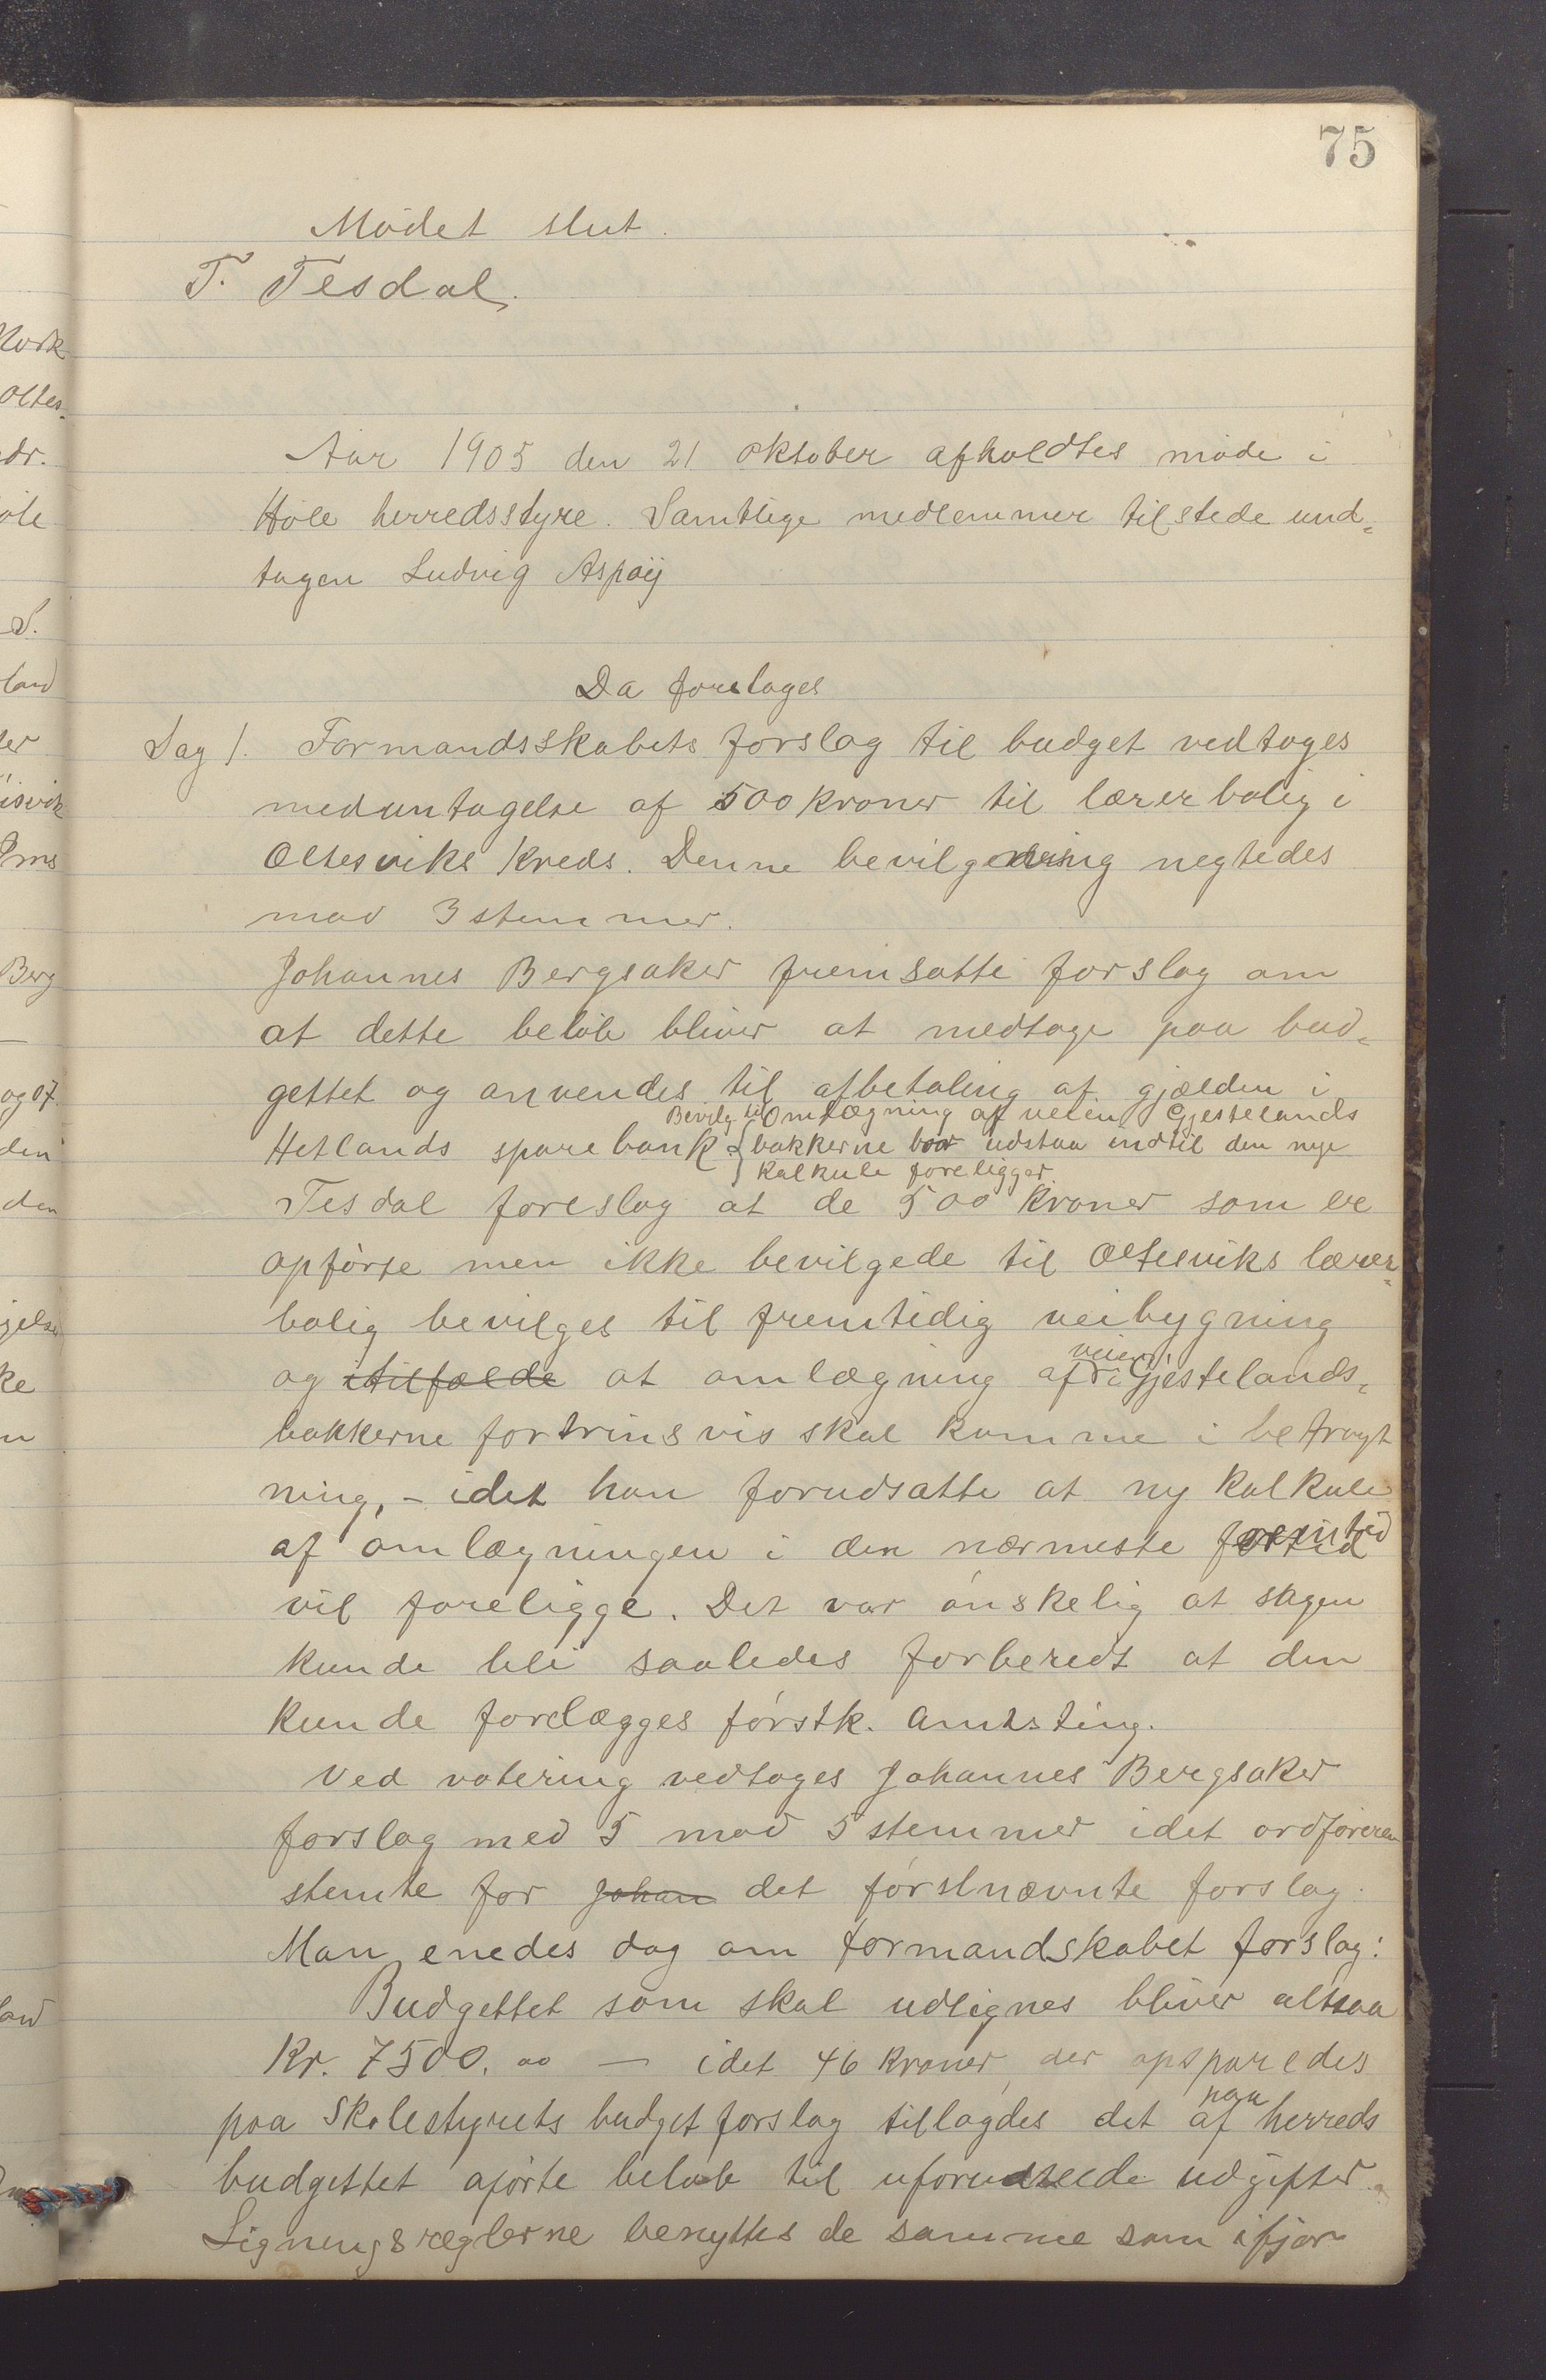 75
Mødet slut.
T. Tesdal.
Aar 1905 den 21 oktober afholdtes møde i
Høle herredsstyre. Samtlige medlemmer tilstede und-
tagen Ludvig Aspøy
Da foretoges
Sag 1. Formandsskabets forslag til budget vedtoges
meduntagelse af 500 kroner til lærerbolig i
Oltesviks kreds. Denne bevilgning negtedes
mod 3 stemmer.
Johannes Bergsaker fremsatte forslag om
at dette beløb bliver at medtage paa bud-
gettet og anvendes til afbetaling af gjælden i
Bevilg. til Omlægning af veien i Gjestelands
Hetlands sparebank. bakkerne bør udstaa indtil den nye
kalkule foreligger.
Tesdal foreslog at de 500 kroner som er
opførte men ikke bevilgede til Oltesviks lærer-
bolig bevilges til fremtidig veibygning
og itilfælde at omlægning af veien i Gjestelands-
bakkerne fortrinsvis skal komme i betragt
ning, - idet han forudsatte at ny kalkule
af omlægningen i den nærmeste fremtid
vil foreligge. Det var ønskelig at sagen
kunde bli saaledes forberedt at den
kunde forelægges førstk. amtsting.
Ved votering vedtoges Johannes Bergsaker
forslag med 5 mod 5 stemmer idet ordføreren
stemte for Johan det førstnævnte forslag.
Man enedes dog om formandskabet forslag:
Budgettet som skal udlignes bliver altsaa
Kr. 7500.00 — idet 46 kroner, der opsparedes
paa Skolestyrets budgetforslag tillagdes det af paa herreds
budgettet opørte beløb til uforudseede udgifter.
Ligningsreglerne benyttes de samme som ifjor